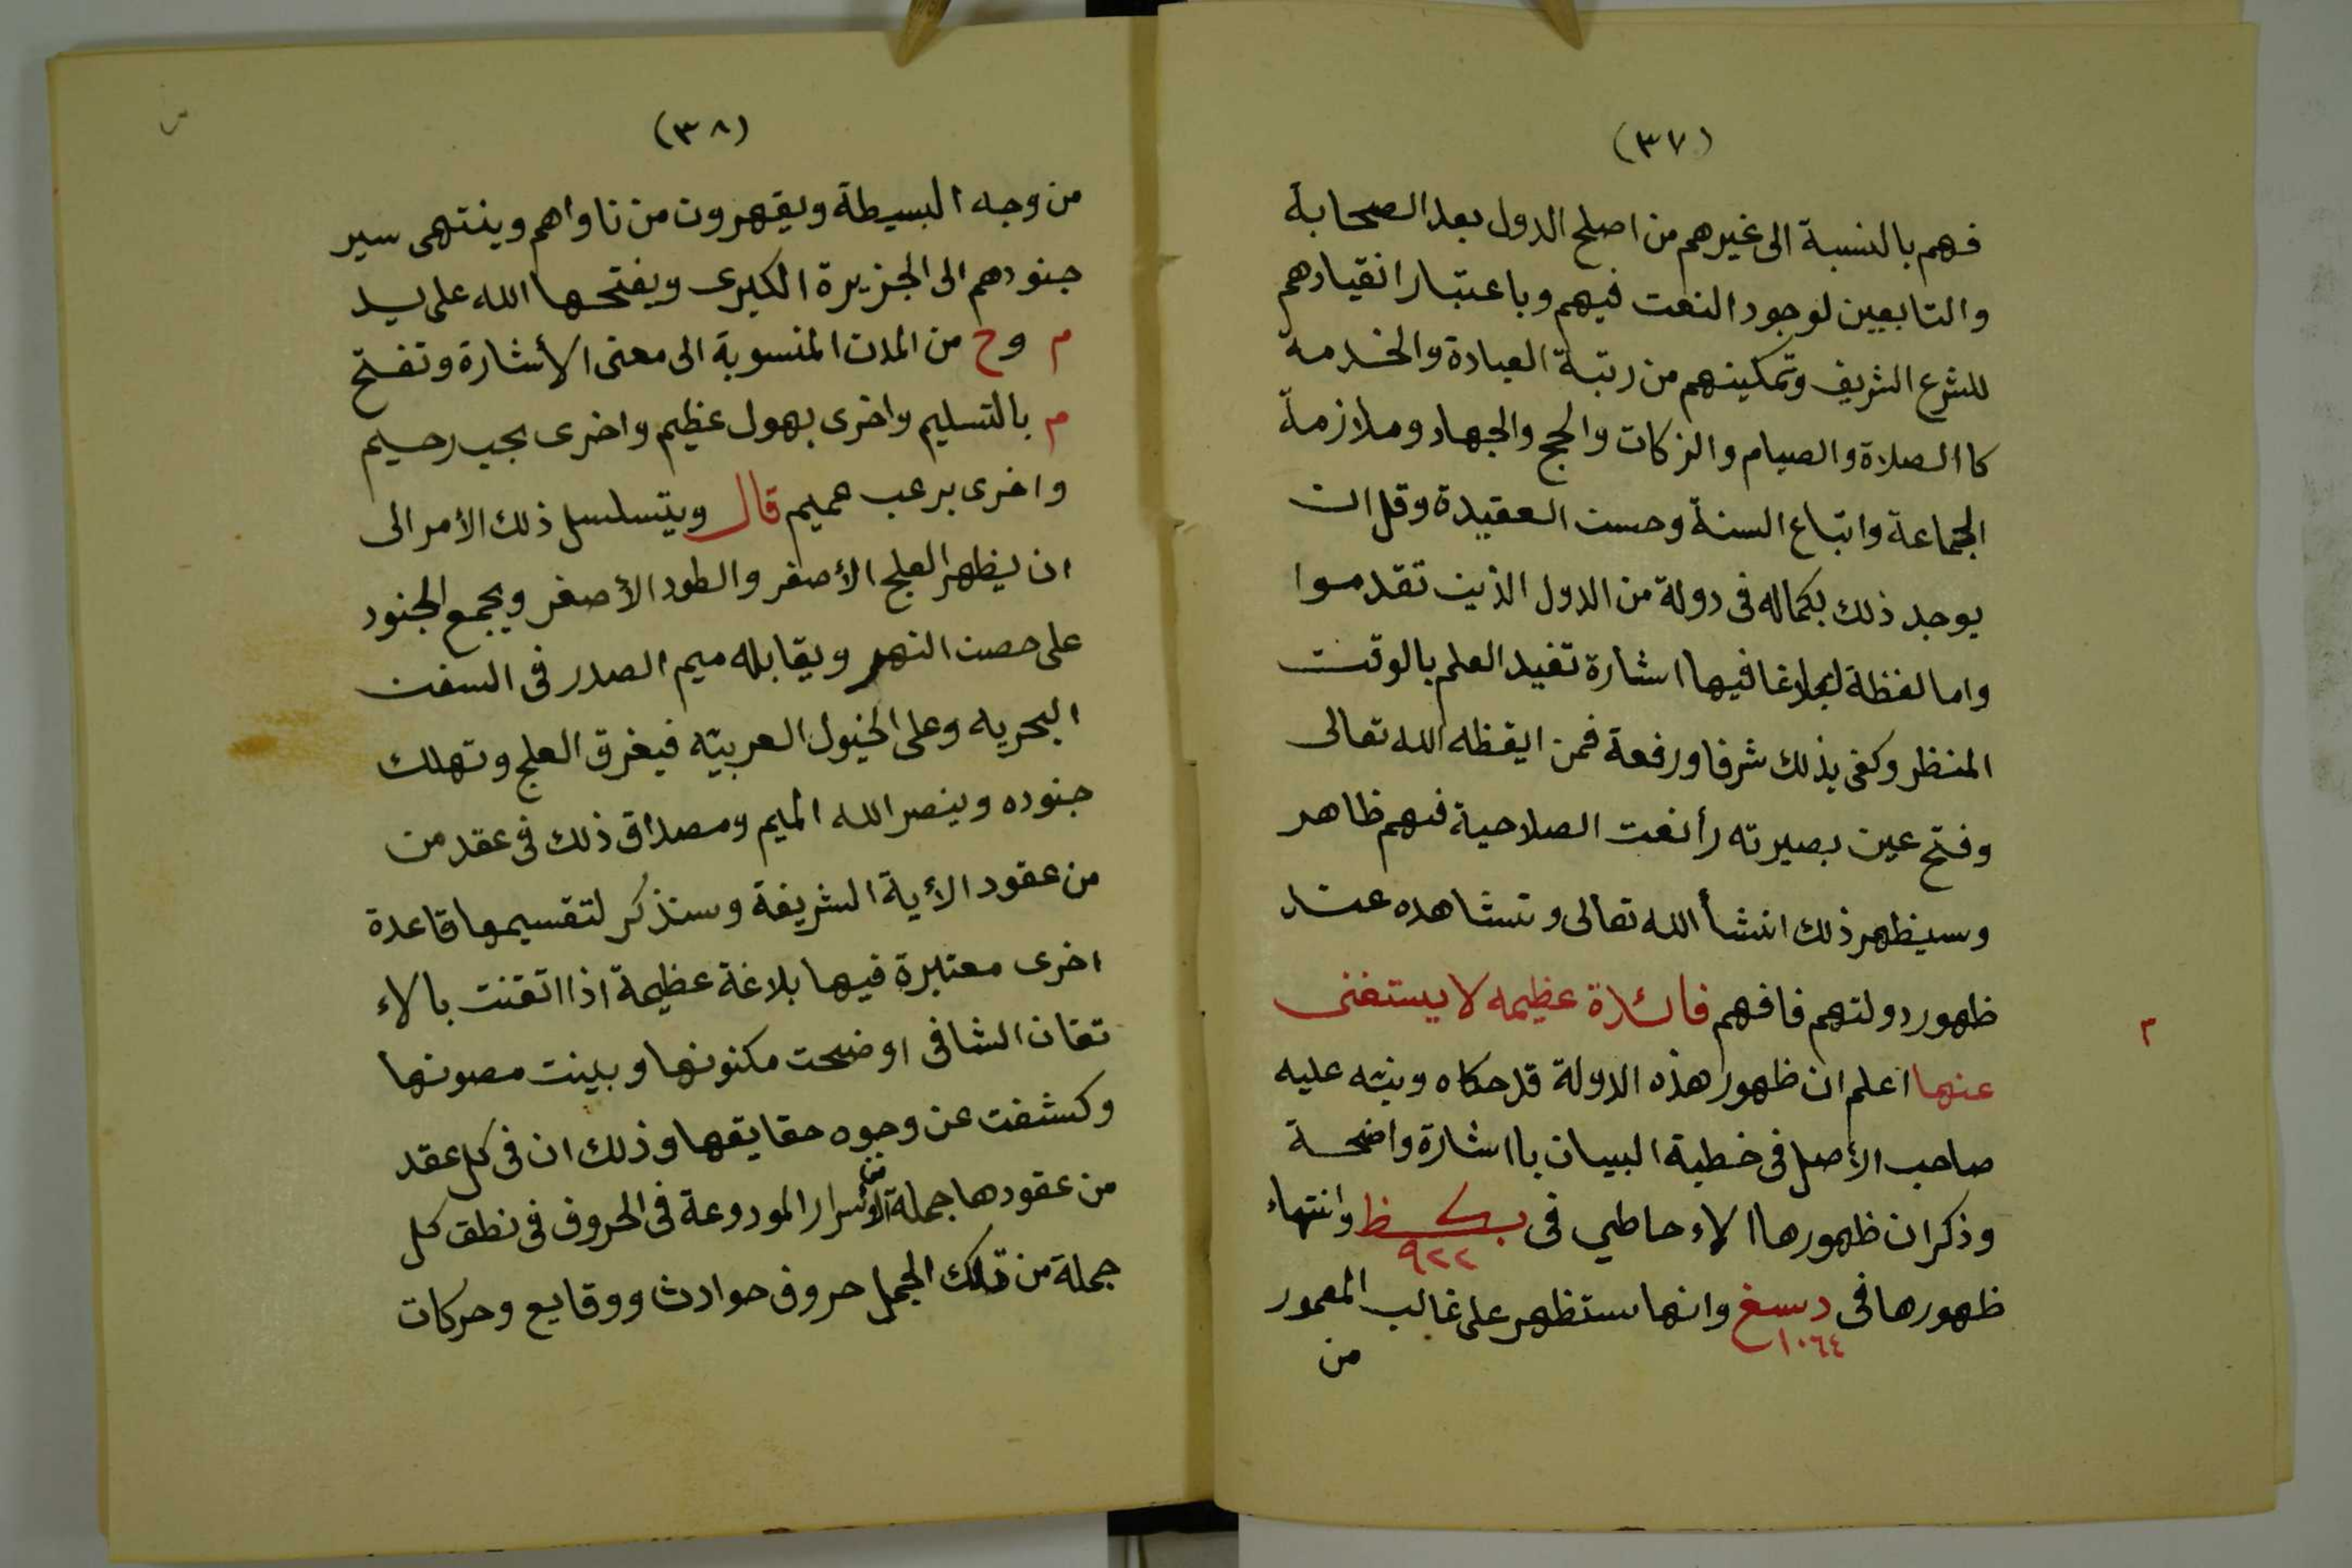 (٣٧)
فهم بالنسبة الى غيرهم من اصلح الدول بعد الصحابة
والتابعين لوجود النعت فيهم وباعتبار انقيادهم
للشرع الشريف وتمكينهم من رتبة العبادة والخدمة
كاالصلاة والصيام والزكات والحج والجهاد وملازمة
الجماعة واتباع السنة وحسن العقيدة وقل ان
يوجد ذلك بكماله فى دولة من الدول الذين تقدموا
واما لفظة لبلاغا فيها اشارة تفيد العلم بالوقت
المنظر وكفى بذلك شرفا ورفعة فمن ايقظه الله تعالى
وفتح عين بصيرته رأ نعت الصلاحية فيهم ظاهر
وسيظهر ذلك انشأ الله تعالى وتشاهده عند
ظهور دولتهم فافهم فائدة عظيمه لا يستغنى
عنها اعلم ان ظهور هذه الدولة قد حكاه ونبّه عليه
صاحب الأصل فى خطبة البيان بااشارة واضحة
وذكر ان ظهورها الاءحاطي فى بكظ وانتهاء
٩٢٢
ظهورها فى دسغ وانها ستظهر على غالب المعمور
١٠٦٤
من
٣
(٣٨)
من وجه البسيطة ويقهرون من ناواهم وينتهى سير
جنودهم الى الجزيرة الكبرى ويفتحها الله على يد
م وح من المدن المنسوبة الى معنى الأشارة وتفتح
م بالتسليم واخرى بهول عظيم واخرى بجب رحيم
واخرى برعب عميم قال ويتسلسل ذلك الأمر الى
ان يظهر العلج الأصفر والطود الأصغر ويجمع الجنود
على حصن النهر ويقابله ميم الصدر فى السفن
البحريه وعلى الخيول العربيّه فيغرق العلج وتهلك
جنوده وينصر الله الميم ومصداق ذلك فى عقد من
من عقود الأية الشريفة وسنذكر لتقسيمها قاعدة
اخرى معتبرة فيها بلاغة عظيمة اذا اتقنت بالاء
تقان الشافى اوضحت مكنونها وبينت مصونها
وكشفت عن وجوه حقايقها وذلك ان فى كل عقد
من عقودها جملة من الأسرار المودوعة فى الحروف فى نطق كل
جملة من تلك الجمل حروف حوادث ووقايع وحركات